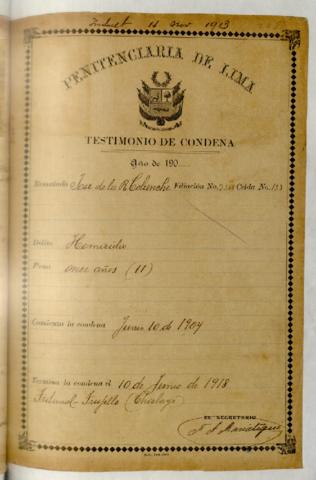 1913
PENITENCIARIA DE LIMA
TESTIMONIO DE CONDENA
Año de 190
Rematado José de la R. Colunche Filiación No. Celda No.
Delito Homicidio
Pena once años (11)
Comienza la condena Junio 10 de 1907
Termina la condena el 10 de Junio de 1918
Tribunal Trujillo (Chiclayo)
EL SECRETARIO